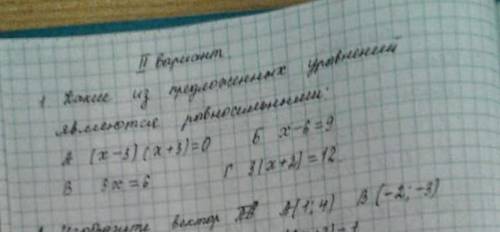 II вариант.
1 Какие из предложенных уравнений
являются равносильными:
А (x-3)(x+3)=0 Б x-6=9
В 3x=6 Г 3(x+2)=12
вектор AB A(1; 4) B(-2; -3)